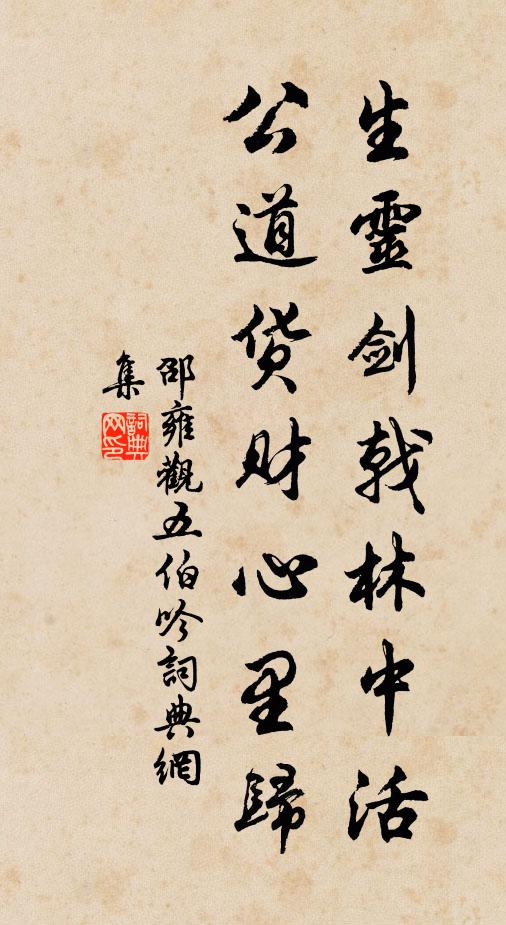 生靈劍戟林中活
公道貨财心里歸
邵雍觀五伯吟詞典網
集
詞典
网印